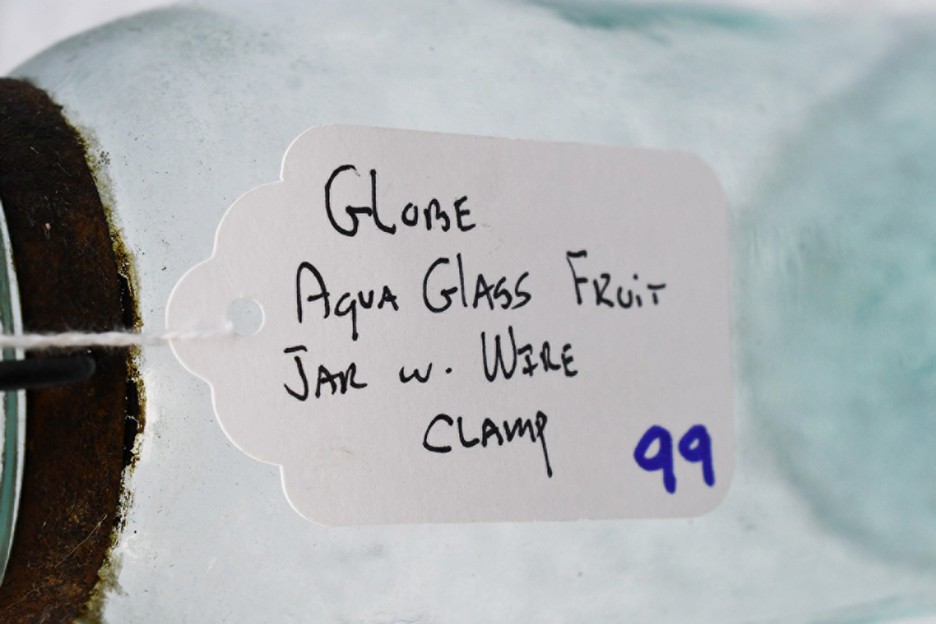 Globe
Aqua Glass Fruit
Jar w. Wire
Clamp
99